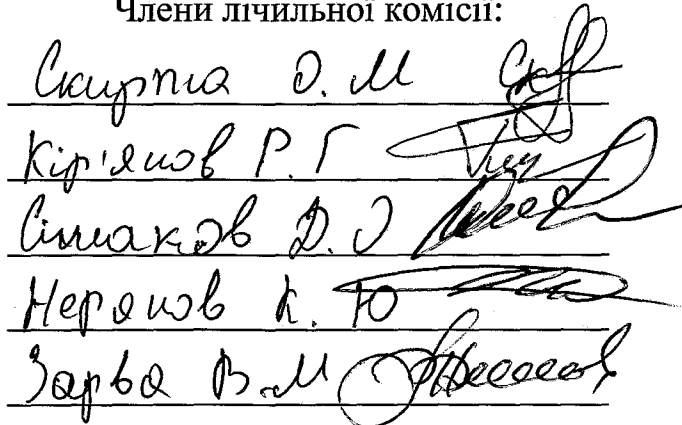 Члени лічильної комісії:
Скирта О. М
Кір'яков Р. Г
Сімаков Д. О
Неряков К. Ю
Зарва В. М